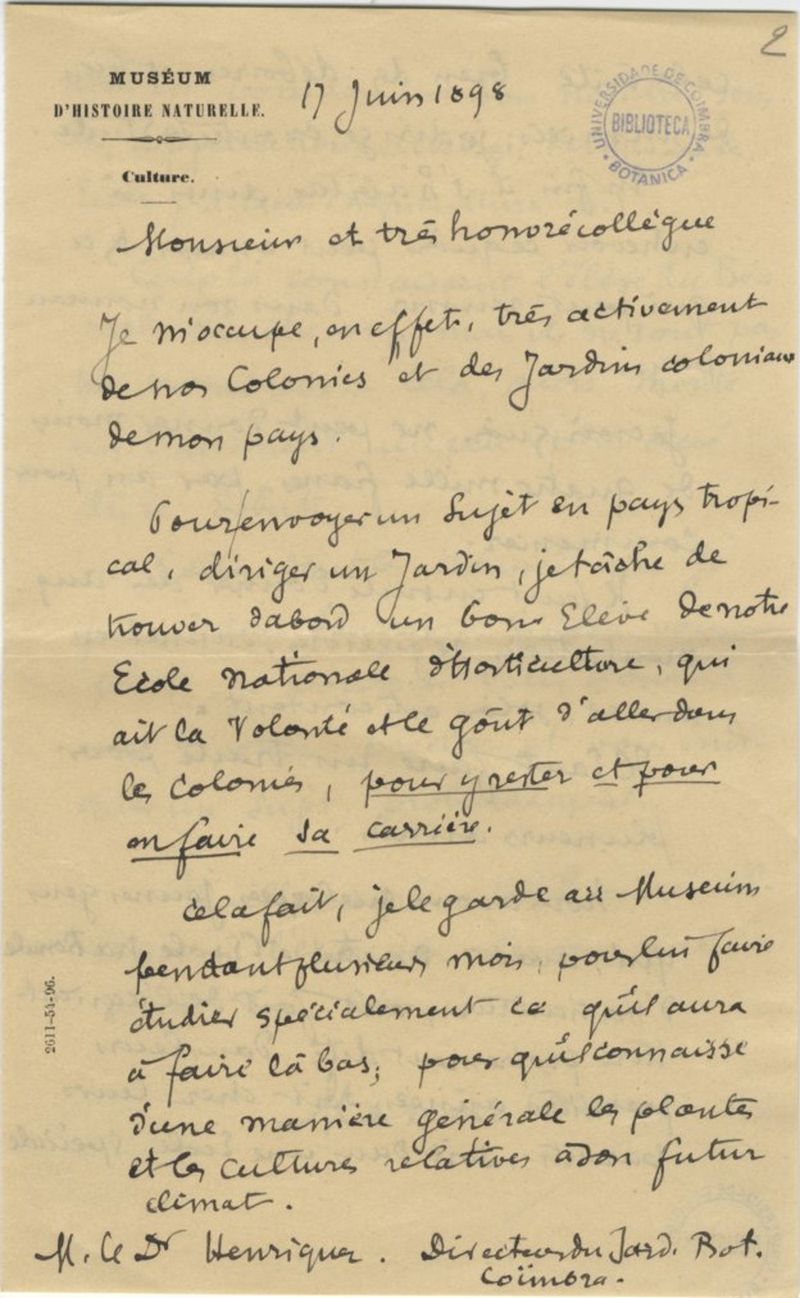 2
MUSÉUM
D'HISTOIRE NATURELLE.
Culture.
17 Juin 1898
UNIVERSIDADE DE COIMBRA
BIBLIOTECA
BOTANICA
Monsieur et très honoré collègue
Je m'occupe, en effet, très activement
de nos Colonies et des Jardins coloniaux
de mon pays.
Pour envoyer un Sujet en pays tropi-
cal, diriger un Jardin, je tâche de
trouver d'abord un bon Elève de notre
Ecole Nationale d'Horticulture, qui
ait la Volonté et le goût d'aller dans
les Colonies, pour y rester et pour
en faire sa carrière.
Cela fait, je le garde au Museum
pendant plusieurs mois, pour lui faire
étudier spécialement ce qu'il aura
à faire là bas; pour qu'il connaisse
d'une manière générale les plantes
et les cultures relatives à son futur
climat.
M. le Dr Henriques. Directeur du Jard. Bot.
Coïmbra.
2611-54-96.